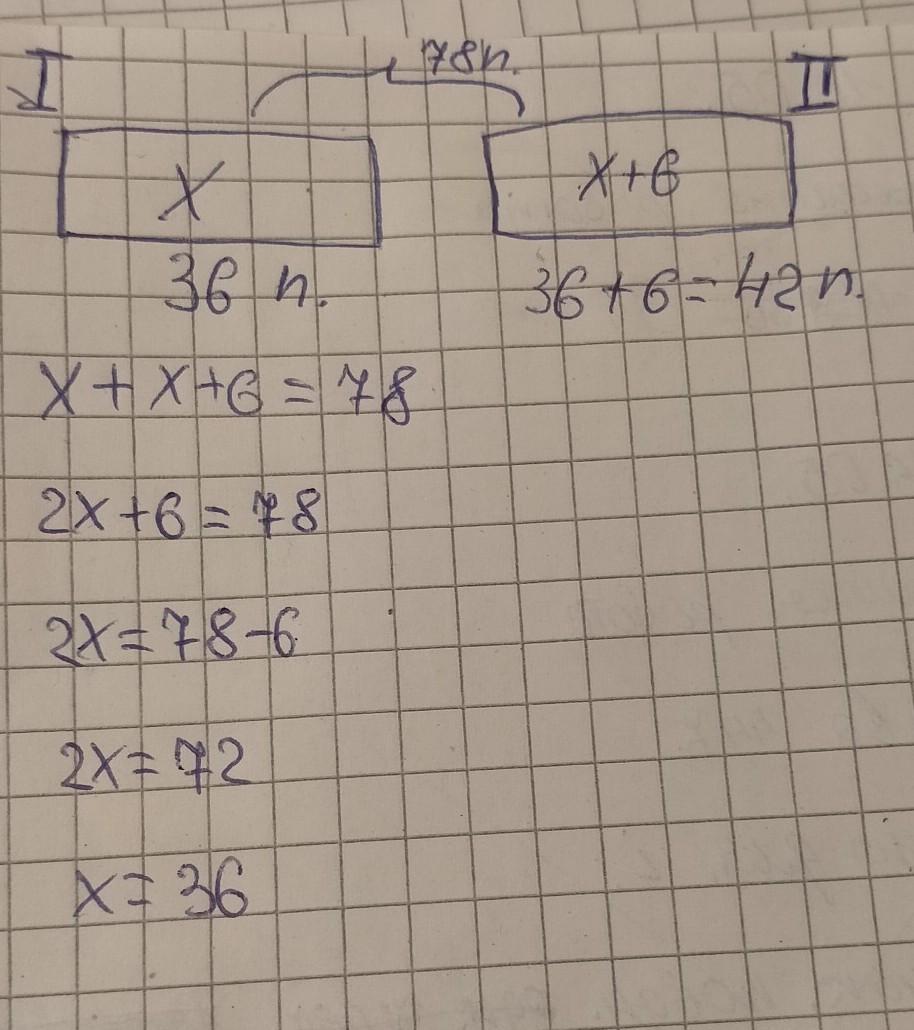 78п.
I II
X X+6
36 п. 36+6=42п.
X+X+6=78
2X+6=78
2X=78-6
2X=72
X=36